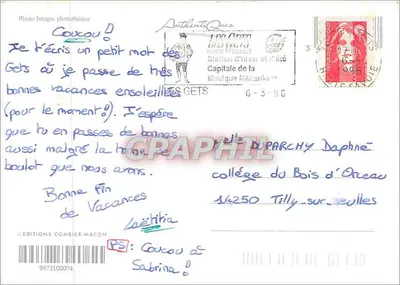 Photo Images photothèque
Coucou!
Je t'écris un petit mot des
Gets où je passe de très
bonnes vacances ensoleillées
(pour le moment!). J'espère
que tu en passes de bonnes
aussi malgré la tonne de
boulot que nous avons.
Bonne fin
de Vacances
Laëtitia
PS: Coucou à
Sabrina!
EDITIONS COMBIER MACON
9973100076
AuthentiQues
LES GETS
Station d'hiver et d'été
Capitale de la
Musique Mécanique
LES GETS
6-3-96
CPAPHIL
Melle DUPARCHY Daphné
collège du Bois d'Orceau
14250 Tilly-sur-seulles